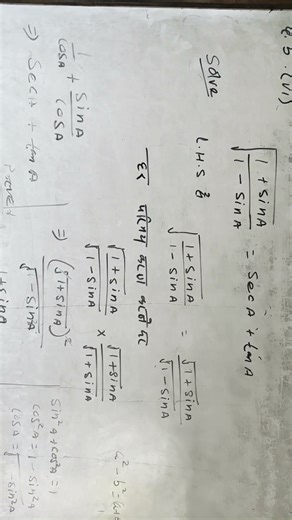 Q.5.(vi)
√(1+sinA)/(1-sinA) = secA + tanA
Solve
L.H.S से
√(1+sinA)/(1-sinA) = √(1+sinA)/√(1-sinA)
हर
√(1+sinA)/√(1-sinA) × √(1+sinA)/√(1+sinA)
⇒ (√1+sinA)²
√1-sin²A
1+sinA
sin²A+cos²A=1
cos²A=1-sin²A
cosA=√1-sin²A
1/cosA + sinA/cosA
⇒ secA + tanA
Proved